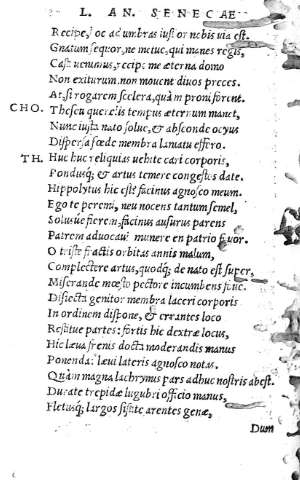 L. AN. SENECAE
Recipe, hoc ad umbras iustior nobis via est.
Gnatum sequor, ne metue, qui manes regis,
Casti uenimus, recipe me æterna domo
Non exiturum. non mouent diuos preces.
At si rogarem scelera, quàm proni forent.
CHO. Theseu querelis tempus æternum manet,
Nunc iusta nato solue, & absconde ocyus
Dispersa fœde membra laniatu effero.
TH. Huc huc reliquias uehite cari corporis,
Pondusq; & artus temere congestos date.
Hippolytus hic est? facinus agnosco meum.
Ego te peremi, neu nocens tantum semel,
Solusue fierem, facinus ausurus parens
Patrem aduocaui munere en patrio fruor.
O triste fractis orbitas annis malum,
Complectere artus, quodq; de nato est super,
Miserande mœsto pectore incumbens foue.
Disiecta genitor membra laceri corporis
In ordinem dispone, & errantes loco
Restitue partes: fortis hic dextræ locus,
Hic læua frenis docta moderandis manus
Ponenda: læui lateris agnosco notas.
Quàm magna lachrymis pars adhuc nostris abest.
Durate trepidæ lugubri officio manus,
Fletusq; largos sistite arentes genæ,
Dum